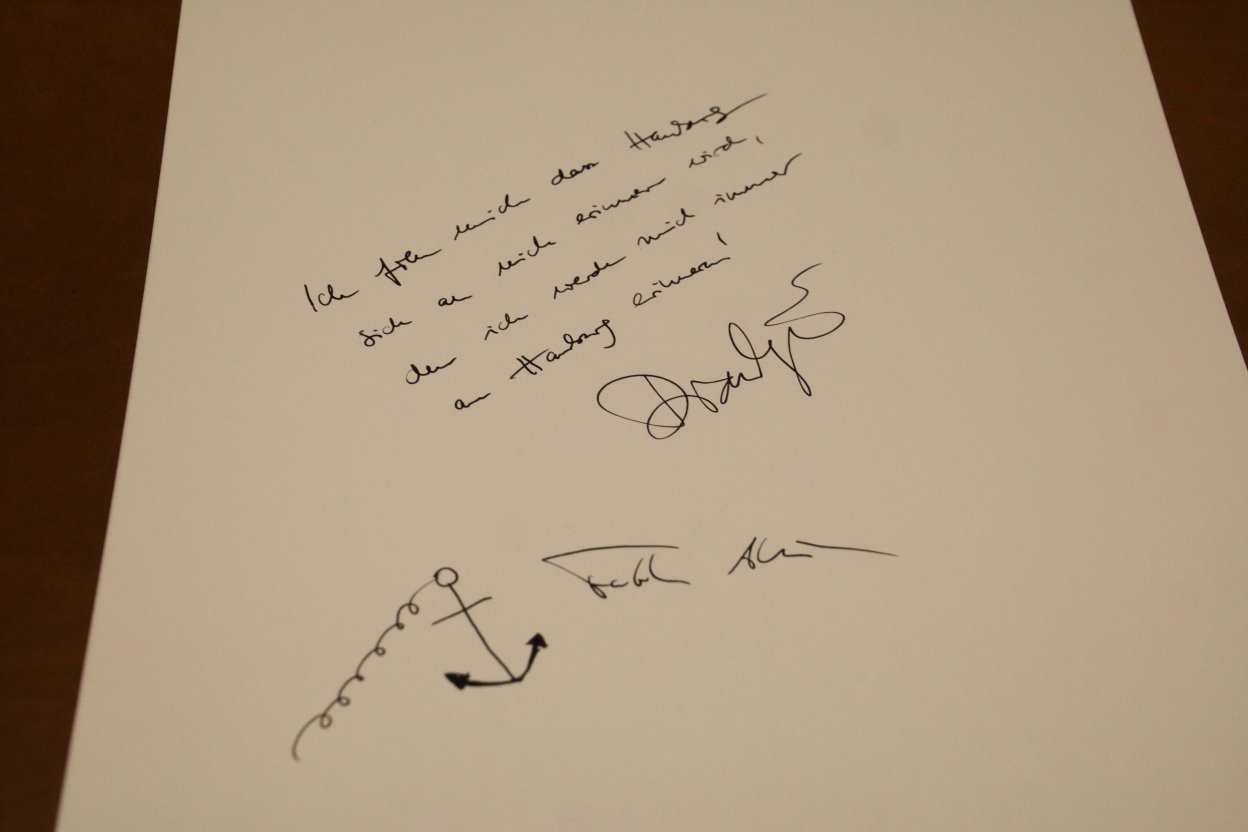 Ich freue mich dass Hamburg
sich an mich erinnern wird,
denn ich werde mich immer
an Hamburg erinnern!
Fatih Akin